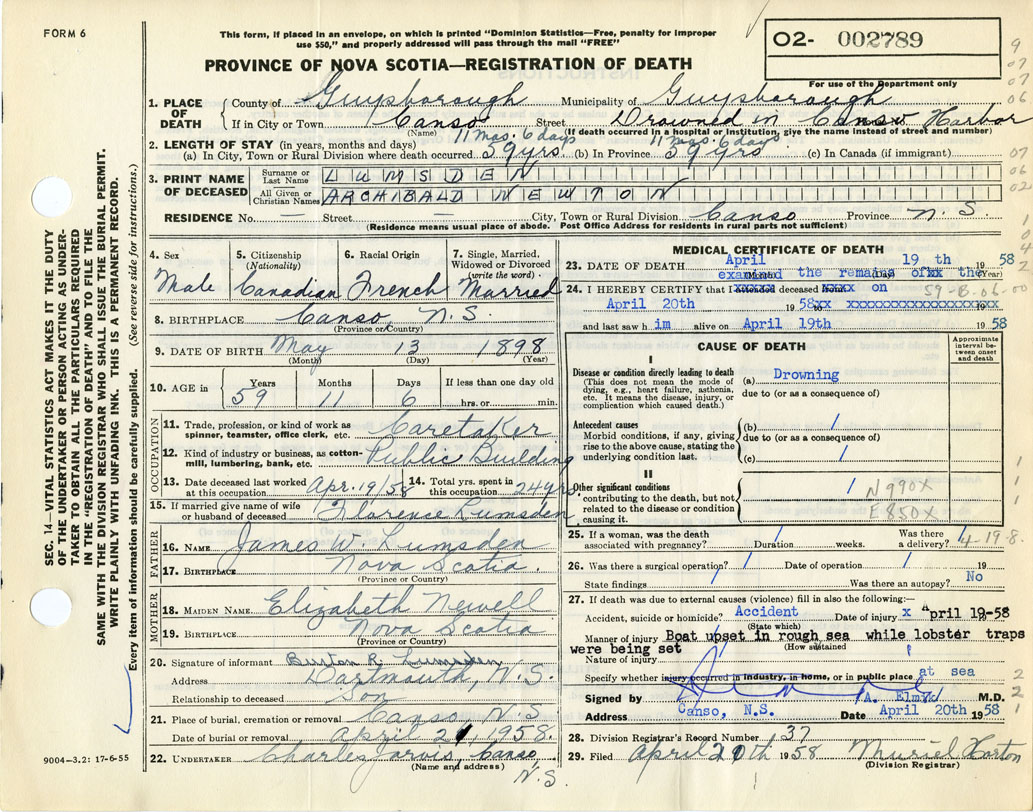 FORM 6
This form, if placed in an envelope, on which is printed "Dominion Statistics—Free, penalty for improper
use $50," and properly addressed will pass through the mail "FREE"
PROVINCE OF NOVA SCOTIA—REGISTRATION OF DEATH
02- 002789
For use of the Department only
1. PLACE OF DEATH
County of Guysborough Municipality of Guysborough
If in City or Town Canso Street Drowned in Canso Harbor
(Name) (If death occurred in a hospital or institution, give the name instead of street and number)
2. LENGTH OF STAY (in years, months and days) 11 mos. 6 days 11 mos. 6 days
(a) In City, Town or Rural Division where death occurred 59 yrs (b) In Province 59 yrs (c) In Canada (if immigrant)
3. PRINT NAME OF DECEASED
Surname or Last Name LUMSDEN
All Given or Christian Names ARCHIBALD NEWTON
RESIDENCE No. — Street — City, Town or Rural Division Canso Province N.S.
(Residence means usual place of abode. Post Office Address for residents in rural parts not sufficient)
4. Sex
Male
5. Citizenship
(Nationality)
Canadian
6. Racial Origin
French
7. Single, Married,
Widowed or Divorced
(write the word)
Married
8. BIRTHPLACE Canso, N.S.
(Province or Country)
9. DATE OF BIRTH May 13 1898
(Month) (Day) (Year)
10. AGE in
Years Months Days If less than one day old
59 11 6 hrs. or min.
OCCUPATION
11. Trade, profession, or kind of work as
spinner, teamster, office clerk, etc. Caretaker
12. Kind of industry or business, as cotton-
mill, lumbering, bank, etc. Public Building
13. Date deceased last worked
at this occupation Apr. 19/58
14. Total yrs. spent in
this occupation 24 yrs
15. If married give name of wife
or husband of deceased Florence Lumsden
FATHER
16. NAME James W. Lumsden
17. BIRTHPLACE Nova Scotia
(Province or Country)
MOTHER
18. MAIDEN NAME Elizabeth Newell
19. BIRTHPLACE Nova Scotia
(Province or Country)
20. Signature of informant Burton R. Lumsden
Address Dartmouth, N.S.
Relationship to deceased Son
21. Place of burial, cremation or removal Canso, N.S
Date of burial or removal April 21, 1958.
22. UNDERTAKER Charles Jarvis, Canso
(Name and address) N.S.
MEDICAL CERTIFICATE OF DEATH
23. DATE OF DEATH April 19 th 1958
(Year)
examined the remains of the
24. I HEREBY CERTIFY that I deceased on
59-B.06.00
April 20th 1958
and last saw him alive on April 19th 1958
CAUSE OF DEATH
Approximate interval between onset and death
I
Disease or condition directly leading to death
(This does not mean the mode of
dying, e.g., heart failure, asthenia,
etc. It means the disease, injury, or
complication which caused death.)
(a) Drowning
due to (or as a consequence of)
Antecedent causes
Morbid conditions, if any, giving
rise to the above cause, stating the
underlying condition last.
(b) /
due to (or as a consequence of)
(c) /
II
Other significant conditions
contributing to the death, but not
related to the disease or condition
causing it.
/
N990X
E850X
25. If a woman, was the death
associated with pregnancy? / Duration weeks.
Was there
a delivery? /
4-19-8.
26. Was there a surgical operation? / Date of operation / 19
State findings / Was there an autopsy? No
27. If death was due to external causes (violence) fill in also the following:—
Accident, suicide or homicide? Accident Date of injury x April 19-58
(State which)
Manner of injury Boat upset in rough sea while lobster traps
(How sustained)
were being set
Nature of injury
Specify whether injury occurred in industry, in home, or in public place at sea
Signed by A. M.D.
Address Canso, N.S. Date April 20th 1958
28. Division Registrar's Record Number 37
29. Filed April 20th 1958 Muriel Horton
(Division Registrar)
SEC. 14—VITAL STATISTICS ACT MAKES IT THE DUTY
OF THE UNDERTAKER OR PERSON ACTING AS UNDER-
TAKER TO OBTAIN ALL THE PARTICULARS REQUIRED
IN THE "REGISTRATION OF DEATH" AND TO FILE THE
SAME WITH THE DIVISION REGISTRAR WHO SHALL ISSUE THE BURIAL PERMIT.
WRITE PLAINLY WITH UNFADING INK. THIS IS A PERMANENT RECORD.
Every item of information should be carefully supplied. (See reverse side for instructions.)
9004-3.2: 17-6-55